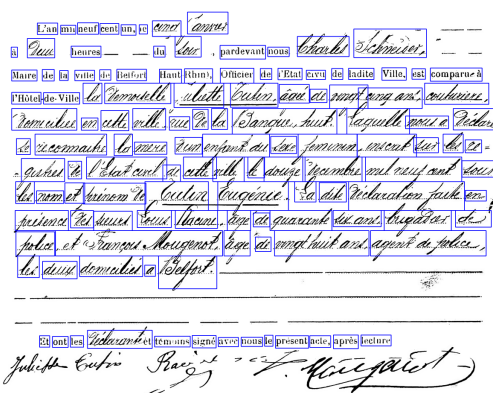 L'an mil neuf cent un, le cinq Janvier
à Deux heures du Soir, pardevant nous Charles Schmeiser,
Maire de la ville de Belfort Haut Rhin), Officier de l'Etat civil de ladite Ville, est comparue à
l'Hôtel-de-Ville la Demoiselle Juliette Cutin, âgée de vingt cinq ans, couturière,
Domiciliée en cette ville, rue de la Banque, huit. laquelle nous a Déclaré
se reconnaître la mère d'un enfant du sexe féminin, inscrit sur les re-
gistres de l'Etat civil de cette ville le douze Décembre mil neuf cent sous
les nom et prénom de Cutin Eugénie. La dite Déclaration faite en
présence des sieurs Louis Racine, âgé de quarante six ans, brigadier de
police, et François Mougenot, âgé de vingt huit ans, agent de police,
les deux domiciliés à Belfort.
Et ont les Déclarante et témoins signé avec nous le présent acte, après lecture
Juliette Cutin Mougenot